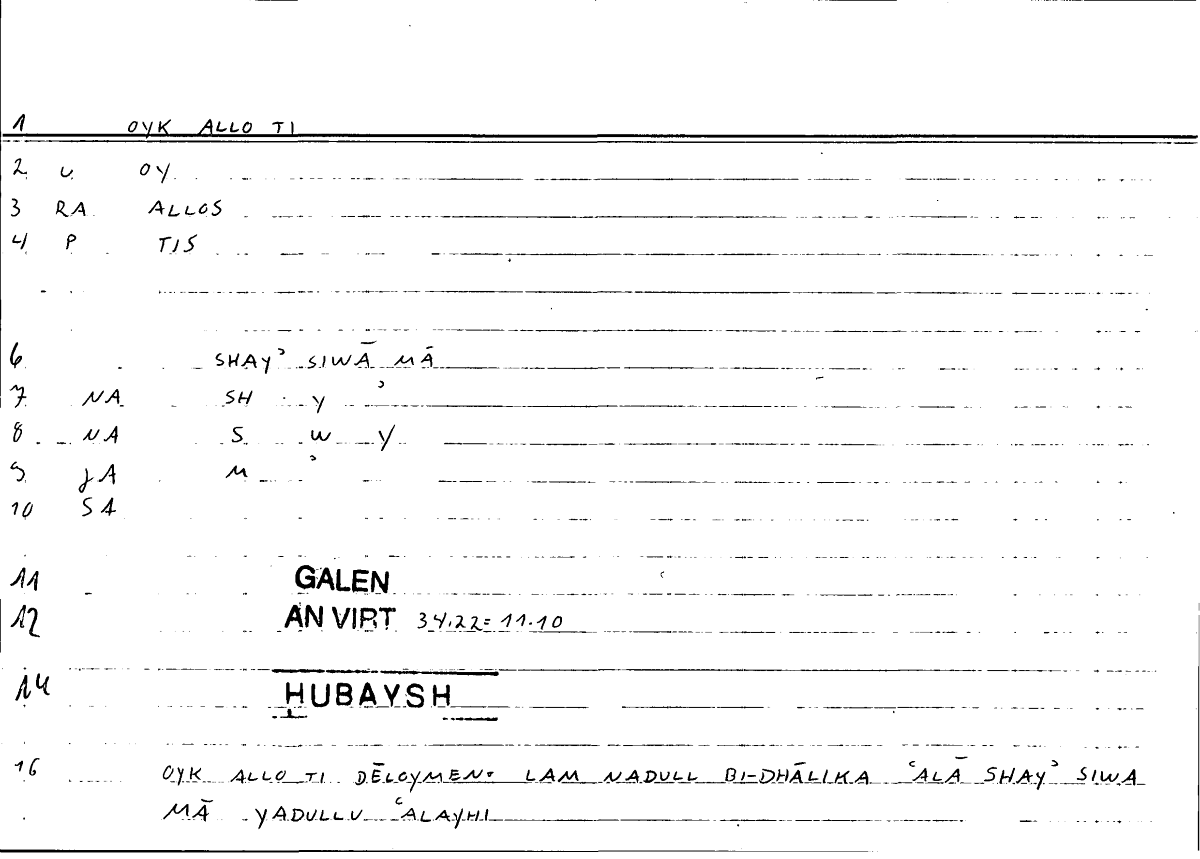 1 OYK ALLO TI
2 U OY
3 RA ALLOS
4 P TIS
6 SHAYʾ SIWĀ MĀ
7 NA SH Y ʾ
8 NA S W Y
9 JA M ʾ
10 SA
11 GALEN
12 AN VIRT 34.22= 11.10
14 HUBAYSH
16 OYK ALLO TI DĒLOYMEN: LAM NADULL BI-DHĀLIKA ʿALĀ SHAYʾ SIWA
MĀ YADULLU ʿALAYHI